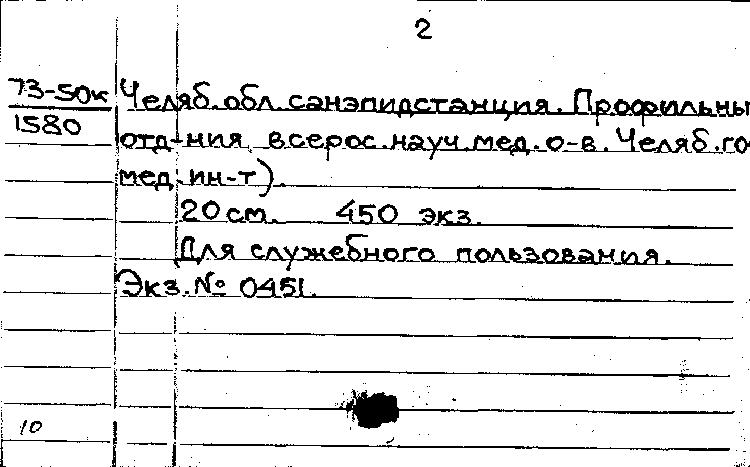 2
73-50к Челяб. обл. санэпидстанция. Профильны
1580 отд-ния всерос. науч. мед. о-в. Челяб. го
мед. ин-т).
20 см. 450 экз.
Для служебного пользования.
Экз. № 0451.
10